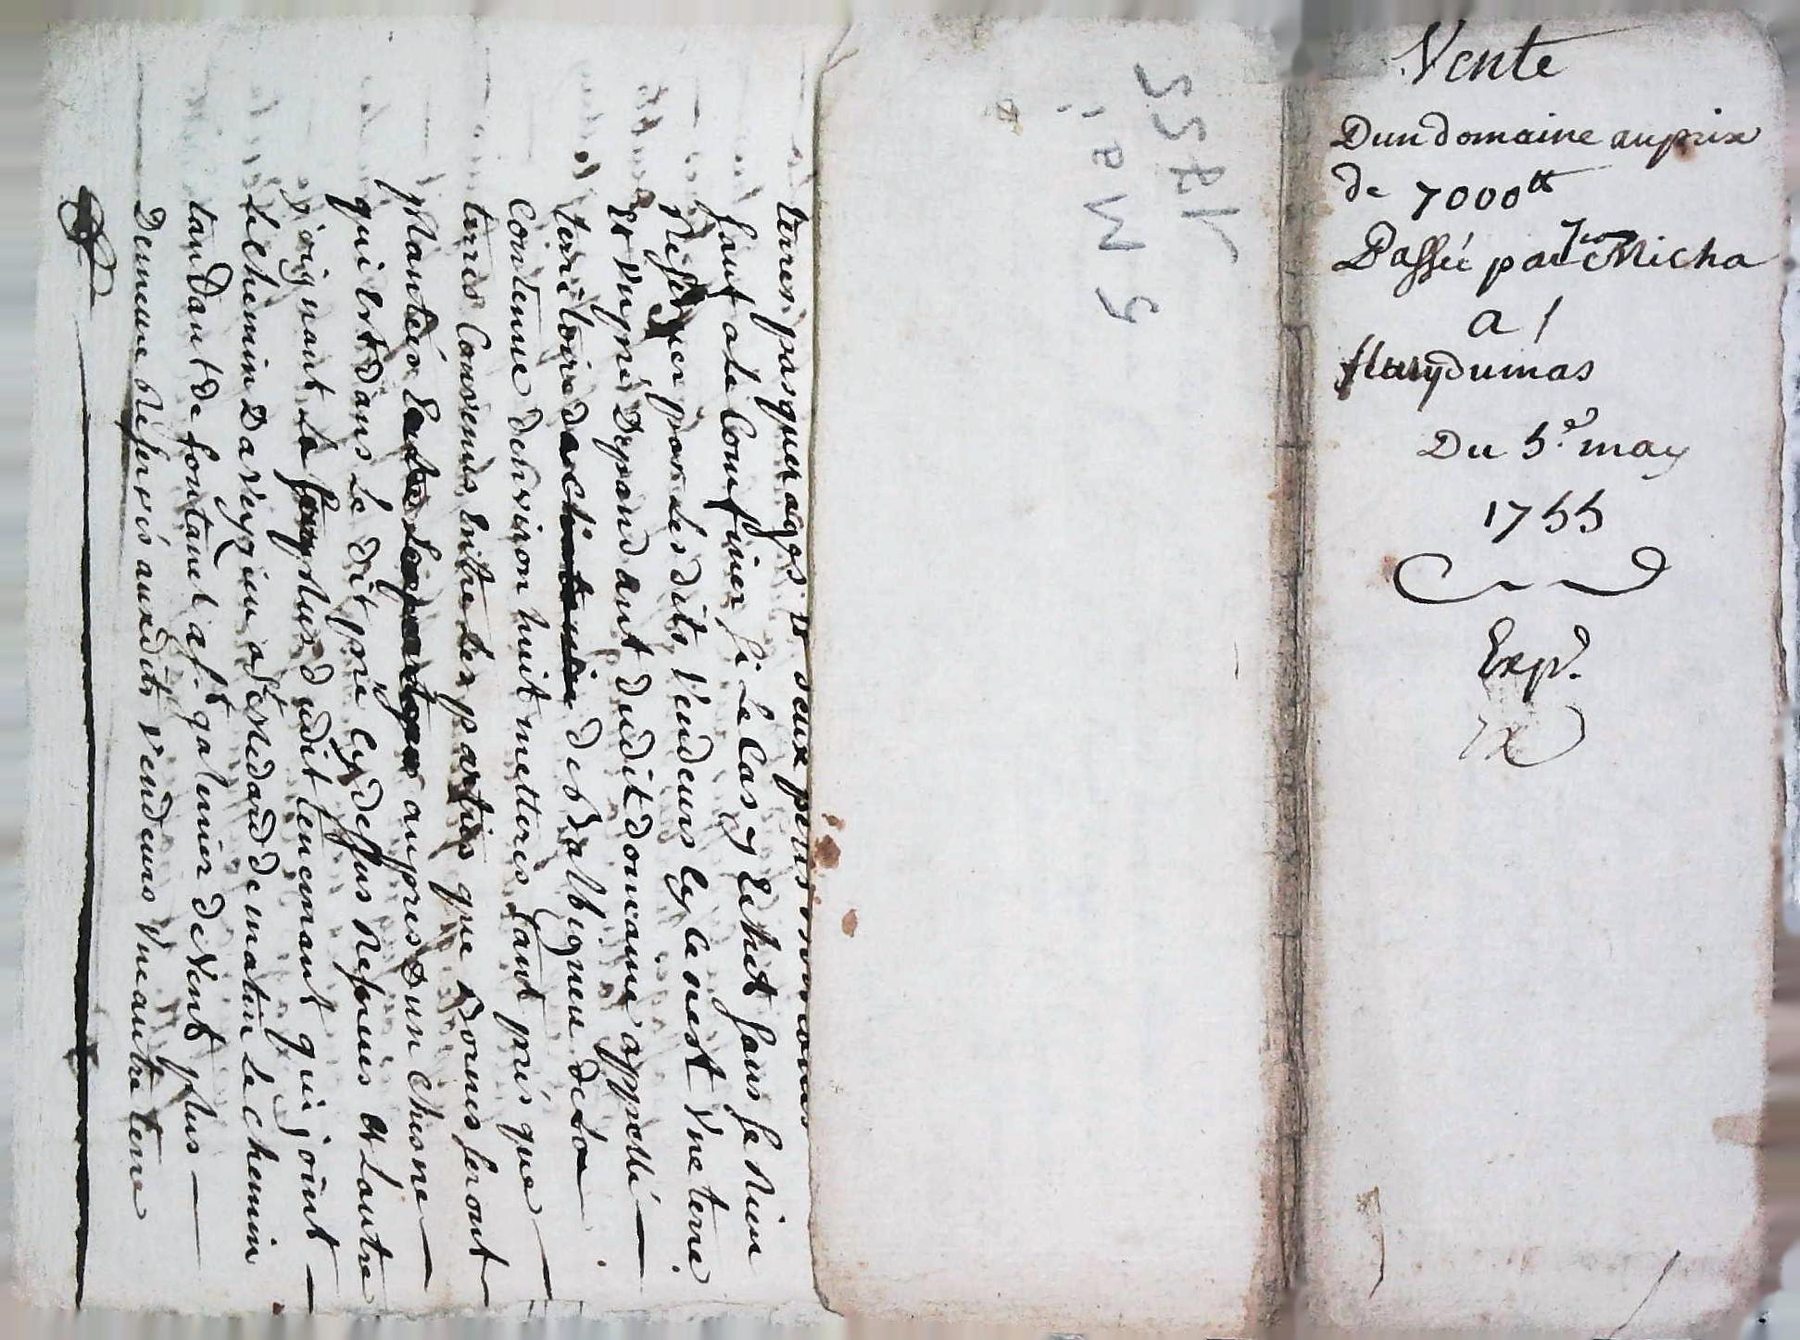 Vente
Dun domaine au prix
de 7000tt
Passée par Jean Micha
a
fleury dumas
Du 5e may
1755
Exp.
5 Mai
1755
terres, pasquerages
faut a le Confiner, si le Cas y Echet sans se Rien
Reserver par les dits Vendeurs, sy ce nest Vne terre
et Vigne Dépendant dudit domeaine appellé
territoire de de dalbigneu de la
Contenue denviron huit metterés, tant prés que
terres Convenus, Entre les parties que bornes seront
plantées aupres Dun Chesne
qui est dans le dit pré Cy dessus Reservés et Lautre
joignant le plus dudit tenemant qui joint
le Chemin Da a St Medard de matin le chemin
tandant de fontanes a St galmier de Vent plus
Demeure Reservés auxdits Vendeurs Vne autre terre